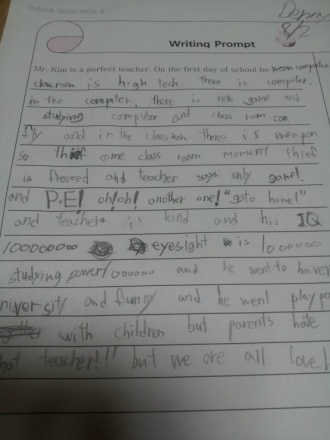 Writing Prompt
Mr. Kim is a perfect teacher. On the first day of school he wears computer
class room is high tech. there is computer.
in the computer, there is non game and
studying computer and class room can
fly and in the classroom there is weapon
so thief come class room moment thief
is freezed and teacher says only game!
and P.E! oh!oh! another one! "goto home!"
and teacher is kind and his IQ
10000000 eyesight is 1000000
studying power 1000000 and he went to haver
niversity and funny and he went play po
with children but parents hate
hat teacher!!" but we are all love!